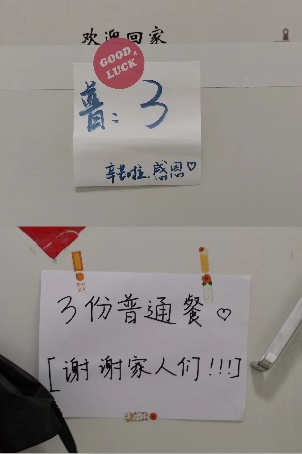 欢迎回家
GOOD
LUCK
普：3
辛苦啦，感恩♡
3份普通餐♡
[谢谢家人们!!!]